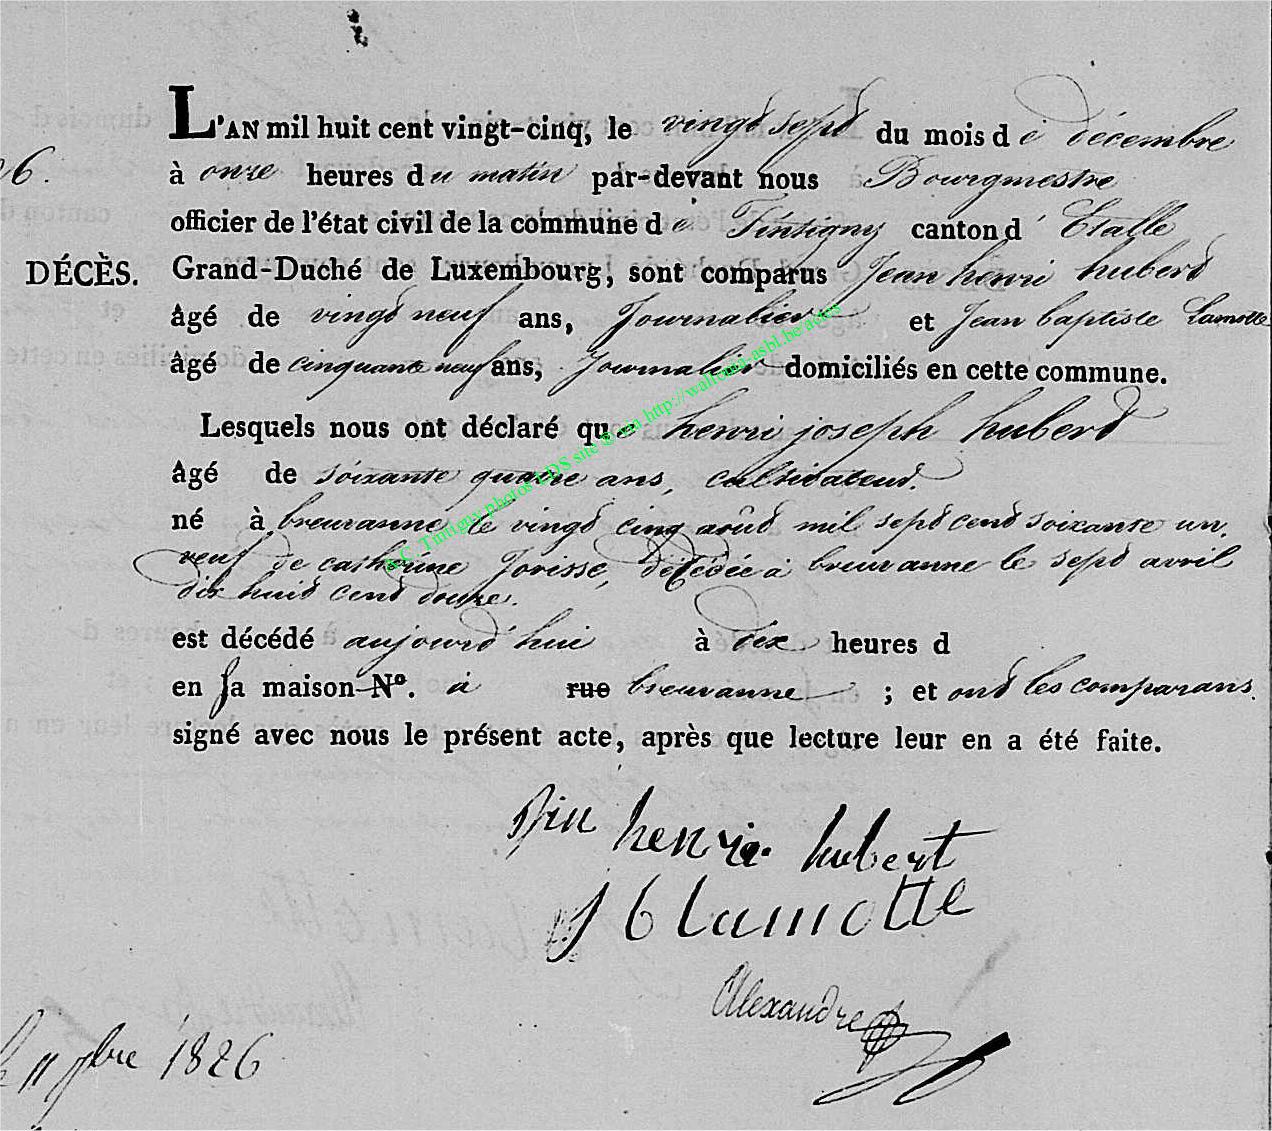 L'AN mil huit cent vingt-cinq, le vingt sept du mois de décembre
26.
à onze heures du matin par-devant nous Bourgmestre
officier de l'état civil de la commune de Tintigny canton d' Etalle
DÉCÈS.
Grand-Duché de Luxembourg, sont comparus Jean henri hubert
âgé de vingt neuf ans, Journalier et Jean baptiste Lamotte
âgé de cinquante neuf ans, Journalier domiciliés en cette commune.
Lesquels nous ont déclaré que henri joseph hubert
âgé de soixante quatre ans, cultivateur.
né à breuvanne le vingt cinq août mil sept cent soixante un.
veuf de catherine Jorisse, décédée à breuvanne le sept avril
dix huit cent douze.
est décédé aujourd'hui à dix heures d
en sa maison N°. à rue breuvanne ; et ont les comparans
signé avec nous le présent acte, après que lecture leur en a été faite.
henri hubert
J b lamotte
Alexandre
11 1826
A.C. Tintigny photos LDS site © via http://wallonia-asbl.be/actes